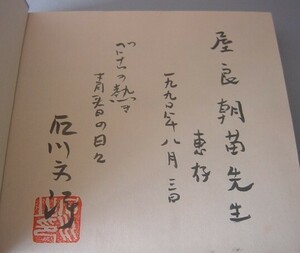 屋良朝苗先生
恵存
一九九〇年八月三日
ベトナムの熱い
青春の日々
石川文洋